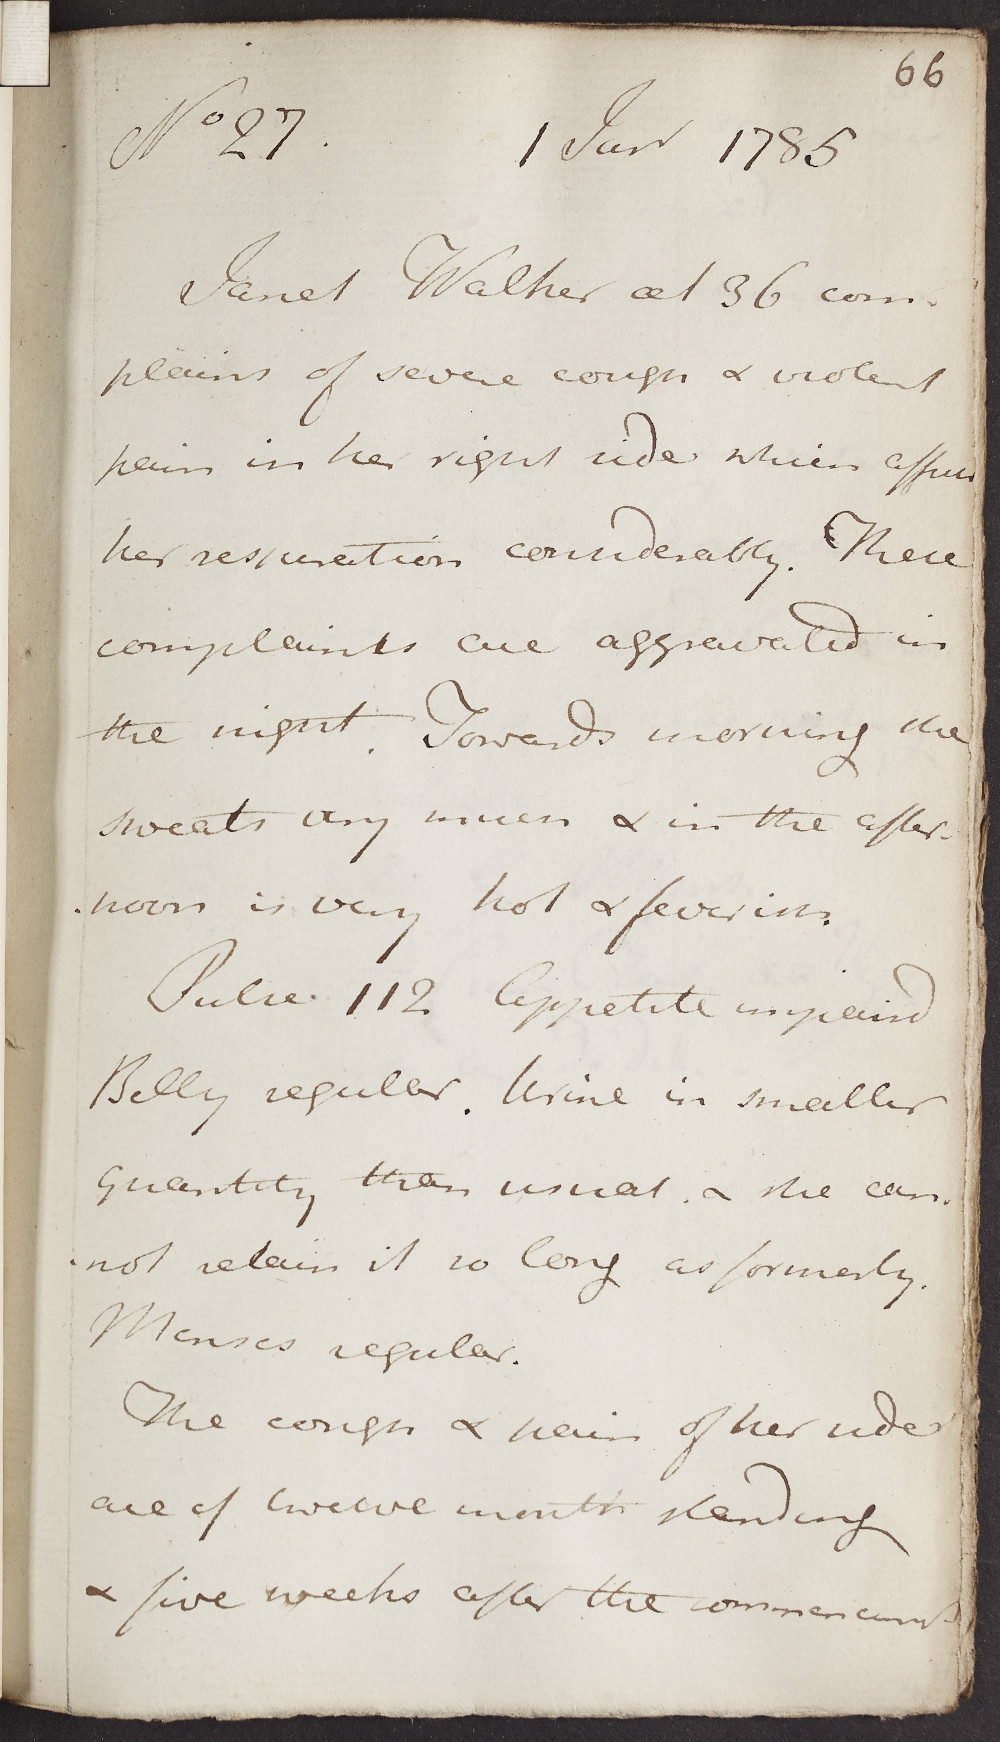 66
No 27. 1 Janr 1785
Janet Walker æt 36 com-
plains of severe cough & violent
pain in her right side which affects
her respiration considerably. These
complaints are aggravated in
the night. Towards morning she
sweats very much & in the after-
noon is very hot & feverish.
Pulse 112 Appetite impaird
Belly regular. Urine in smaller
quantity than usual. & she can-
not retain it so long as formerly.
Menses regular.
The cough & pain of her side
are of twelve month standing
& five weeks after the commencemt